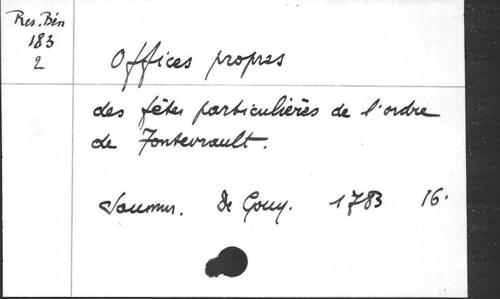 Res. Bén
183
2
Offices propres
des fêtes particulières de l'ordre
de Fontevrault.
Saumur. De Gouy. 1783 16.